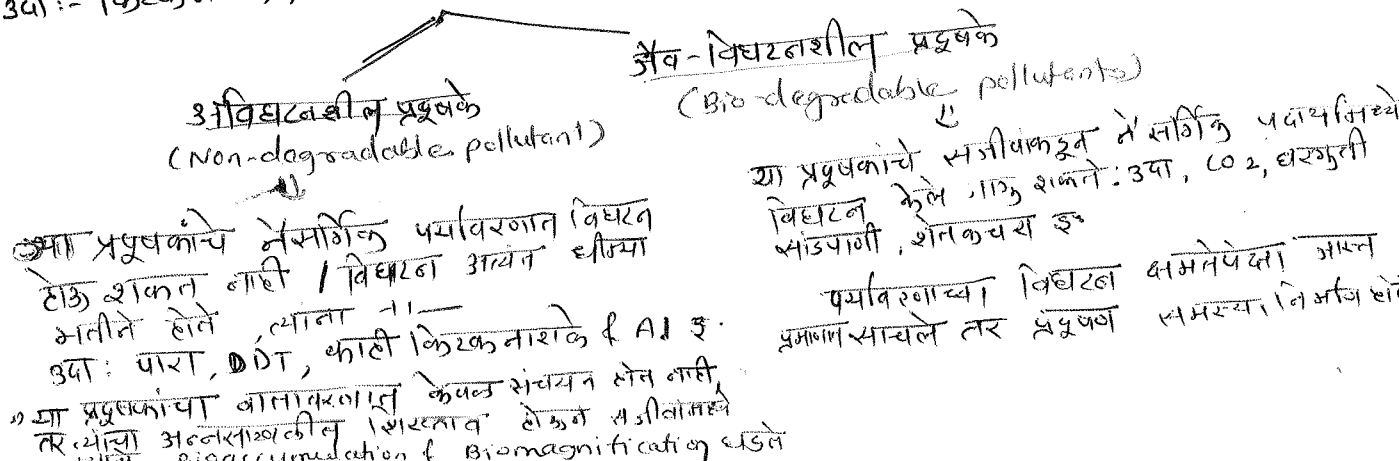 उदा :-
अविघटनशील प्रदूषके
(Non-degradable pollutant)
या प्रदूषकांचे नैसर्गिक पर्यावरणात विघटन
होऊ शकत नाही / विघटन अत्यंत धीम्या
गतीने होते, त्यांना
उदा : पारा, DDT, काही किटकनाशके & Al इ.
" या प्रदूषकांचा वातावरणात केवळ संचयन होत नाही,
तर त्यांचा अन्नसाखळीत शिरकाव होऊन सजीवांमध्ये
Bioaccumulation & Biomagnification घडते
जैव-विघटनशील प्रदूषके
(Bio-degradable pollutants)
या प्रदूषकांचे सजीवांकडून नैसर्गिक पदार्थांमध्ये
विघटन केले जाऊ शकते : उदा, CO2, घरगुती
सांडपाणी, शेतकचरा इ
पर्यावरणाच्या विघटन क्षमतेपेक्षा जास्त
प्रमाणात साचले तर प्रदूषण समस्या निर्माण होते